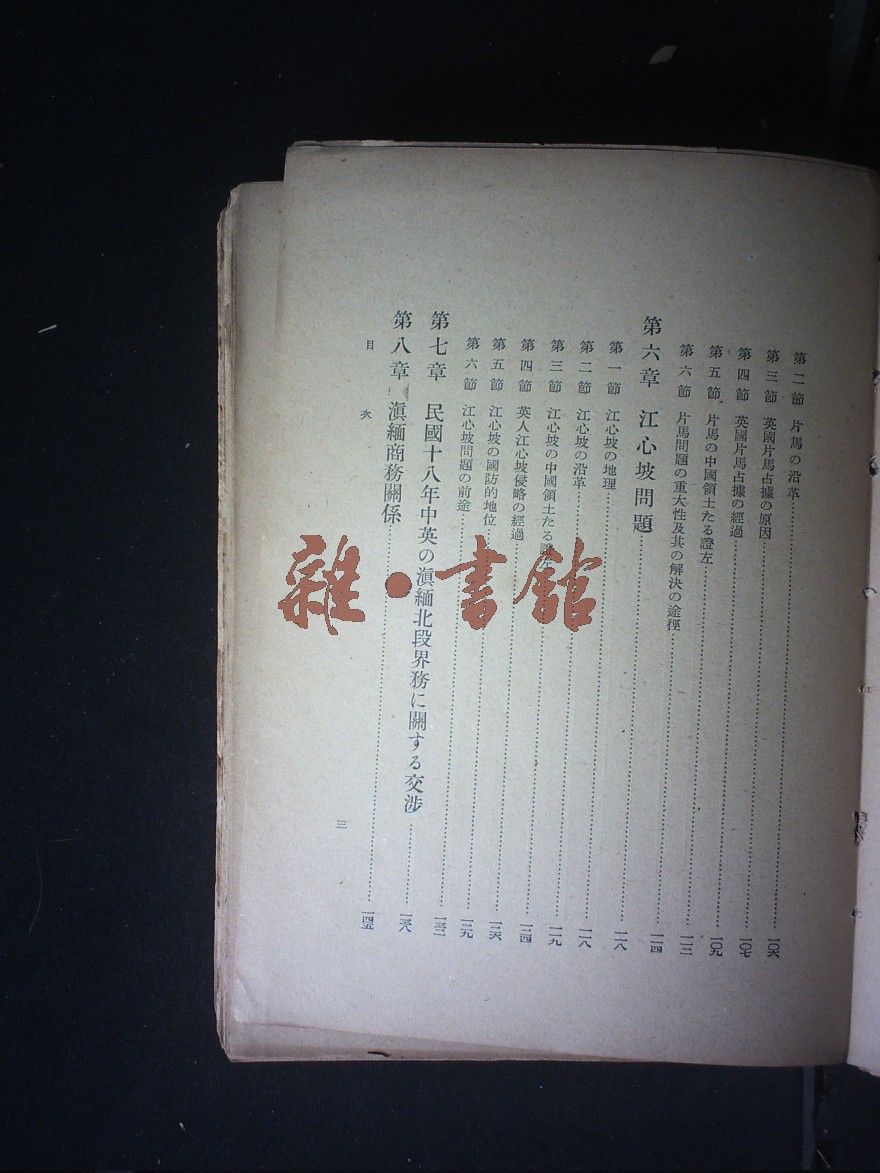 第二節 片馬の沿革……一〇六
第三節 英國片馬占據の原因……一〇七
第四節 英國片馬占據の經過……一〇九
第五節 片馬の中國領土たる證左……一一二
第六節 片馬問題の重大性及其の解決の途徑……一一四
第六章 江心坡問題……一一八
第一節 江心坡の地理……一一八
第二節 江心坡の沿革……一一九
第三節 江心坡の中國領土たる證左……一二四
第四節 英人江心坡侵略の經過……一二六
第五節 江心坡の國防的地位……一二九
第六節 江心坡問題の前途……一三二
第七章 民國十八年中英の滇緬北段界務に關する交涉……一三八
第八章 滇緬商務關係……一四五
目次
三
雜·書館